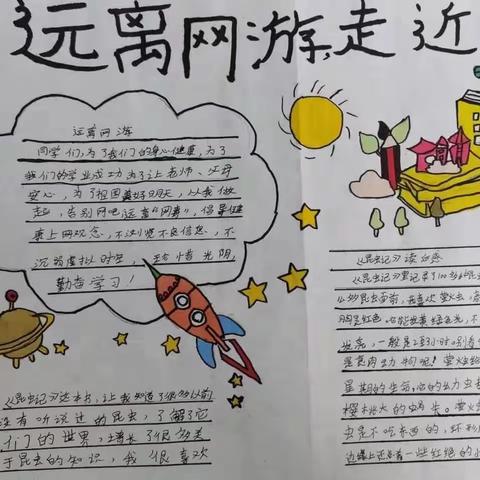 远离网游,走近
远离网游
同学们,为了我们的身心健康,为了
我们的学业成功为了让老师、父母
安心,为了祖国美好明天,从我做
起,告别网吧远离"网毒",倡导健
康上网观念,不浏览不良信息,不
沉溺虚拟时空,珍惜光阴,
勤奋学习!
《昆虫记》这本书,让我知道了很多以前
没有听说过的昆虫,了解了它
们的世界,增长了很多关
于昆虫的知识,我很喜欢
《昆虫记》读后感
《昆虫记》里记录了100多的昆虫
昆虫面前,我喜欢萤火虫,
是红色,
发亮,一般是2到小时
是食肉动物呢!萤火虫给
星期的生命,它的幼虫
樱桃大的蜗牛。萤火
虫是不吃东西的,环形
边缘上还有一些红艳的小